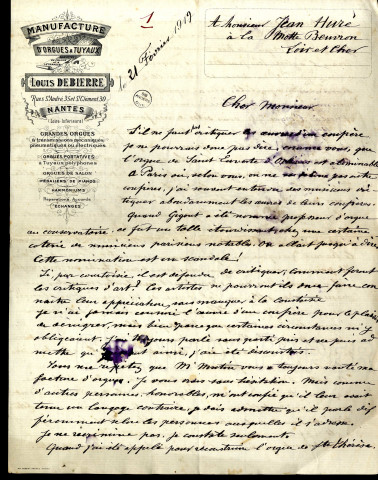 1
MANUFACTURE
D'ORGUES À TUYAUX
LOUIS DEBIERRE
NANTES
(Loire-Inférieure)
GRANDES ORGUES
à transmissions mécaniques,
pneumatiques ou électriques
ORGUES PORTATIVES
à Tuyaux polyphones
ORGUES DE SALON
PÉDALIERS DE PIANOS
HARMONIUMS
Réparations, Accords
ÉCHANGES
le 21 Février 1919
A Monsieur Jean Hervé
à la Motte Beuvron
Loir et Cher
Cher Monsieur
S'il ne faut critiquer les œuvres d'un confrère
je ne pourrais donc pas dire, comme vous, que
l'orgue de Saint est abominable
A Paris où, selon vous, on ne pas entre
confrères, j'ai souvent entendu des musiciens cri-
tiquer abondamment les œuvres de leurs confrères.
Quand Gigout a été nommé professeur d'orgue
au conservatoire, ce fut un tolle étourdissant chez une certaine
coterie de musiciens parisiens notables. On allait jusqu'à dire:
Cette nomination est un scandale!
Si, par courtoisie, il est défendu de critiquer, comment feront
les critiques d'art? Les artistes ne pourront ils donc faire con-
naître leur appréciation, sans manquer à la courtoisie
je n'ai jamais l'œuvre d'un confrère pour le plaisir
de dénigrer, mais bien parce que certaines circonstances m'y
obligeaient. avons parlé sans parti pris et ne puis ad-
mettre qu' ainsi, j'ai été discourtois.
Vous me que Mr Mutin vous a toujours vanté ma
facture d'orgue. Je vous crois sans hésitation. Mais comme
d'autres personnes, honorables, m'ont confié qu'il leur avait
tenu un langage contraire, je dois admettre qu'il parle dif-
féremment selon les personnes auxquelles il s'adresse.
Je ne récrimine pas, je constate seulement.
Quand j'ai été appelé pour reconstruire l'orgue de Ste Thérèse,